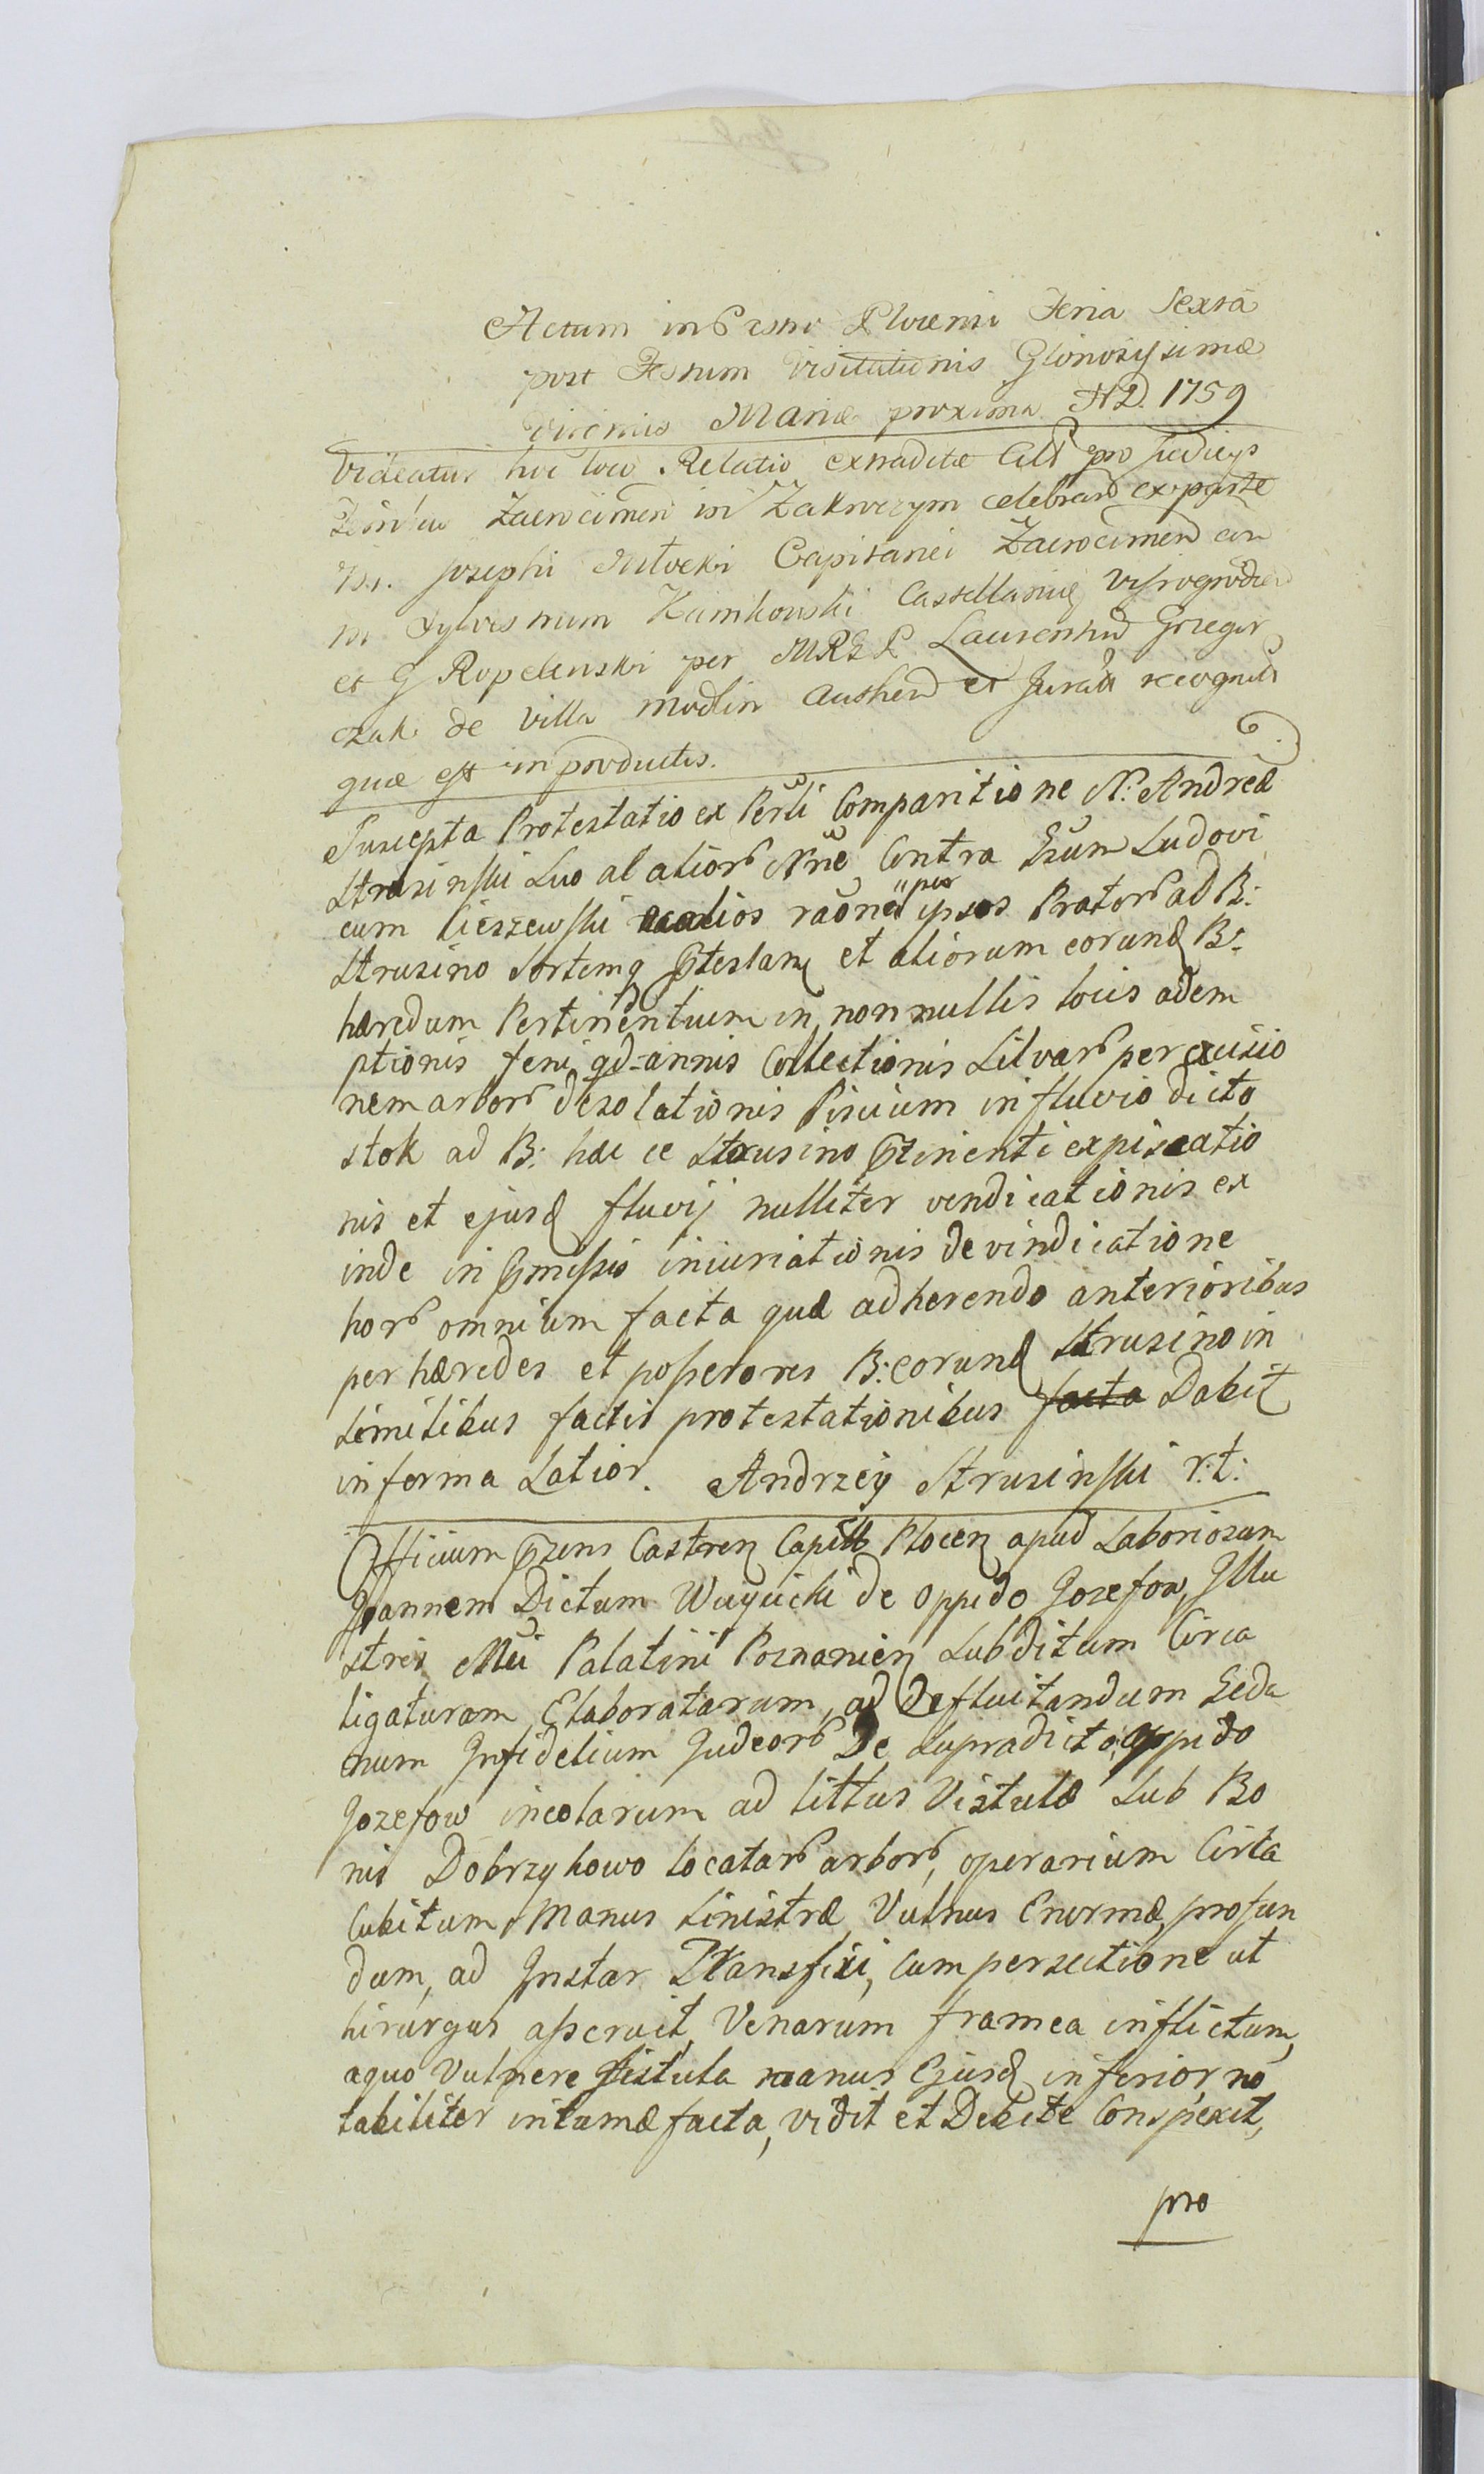 Actum in Castro Plocensi Feria Sexta
post Festum Visitationis Gloriosissimæ
Virginis Mariæ proxima AD. 1759
Videatur hic loco Relatio extraditæ Citt pro Judicys
Zacrocimen in Zakroczym celebrand ex parte
M. Josephi Mlocki Capitanei Zacrocimen con
M Sylvestrum Kamkowski Castellanię Visrogrodien
et G Ropelewski per MRGL Laurentiu Grzegor
czak de Villa Modlin authen et Jurati recognit
quæ est in productis. 6
Suscepta Protestatio ex Perli Comparitione N: Andreæ
Strusinski suo al aliorb Nne Contra Gsum Ludovi
cum Cieszewski alios raone " per ipsos Pratorb ad B:
Strusino Sortemq Gteslanę et aliorum eorund Br
hæredum Pertinentium in nonnullis locis adem
ptionis feni qd-annis Collectionis Silvarb per excisio
nem arborb desolationis Piscium in fluvio dicto
stok ad B: hæc ce Strusino Gtinenti expiscatio
nis et ejusd fluvij nulliter vendicationis ex
inde in Gmissis iniuriationis de vindicatione
horb omnium facta quæ adherendo anterioribus
per hæredes et possessores B: eorund Strusino in
similibus factis protestationibus facta Dabit
in forma Latior. Andrzey Strusinski r.t:
Officium Gsens Castren Capitl Plocen apud Laboriosum
Joannem Dictum Wuyucki de Oppido Jozefow, Illu
stris Mci Palatini Poznanien Subditum Circa
ligaturam Elaboratarum, ad Defluitandum Geda
num Infidelium Judeorb De Supradicto oppido
Jozefow incolarum ad littus Vistulæ Sub Bo
nis Dobrzykowo locatarb arborb, operarium Circa
Cubitum Manus Sinistræ Vulnus Enormæ, profun
dum, ad Instar Transfixi, Cum persectione ut
hirurgus asseruit, Venarum framea inflictum,
aquo Vulnere fistula manus Ejusd inferior no
tabiliter intumæfacta, vidit et Debite Conspexit,
pro